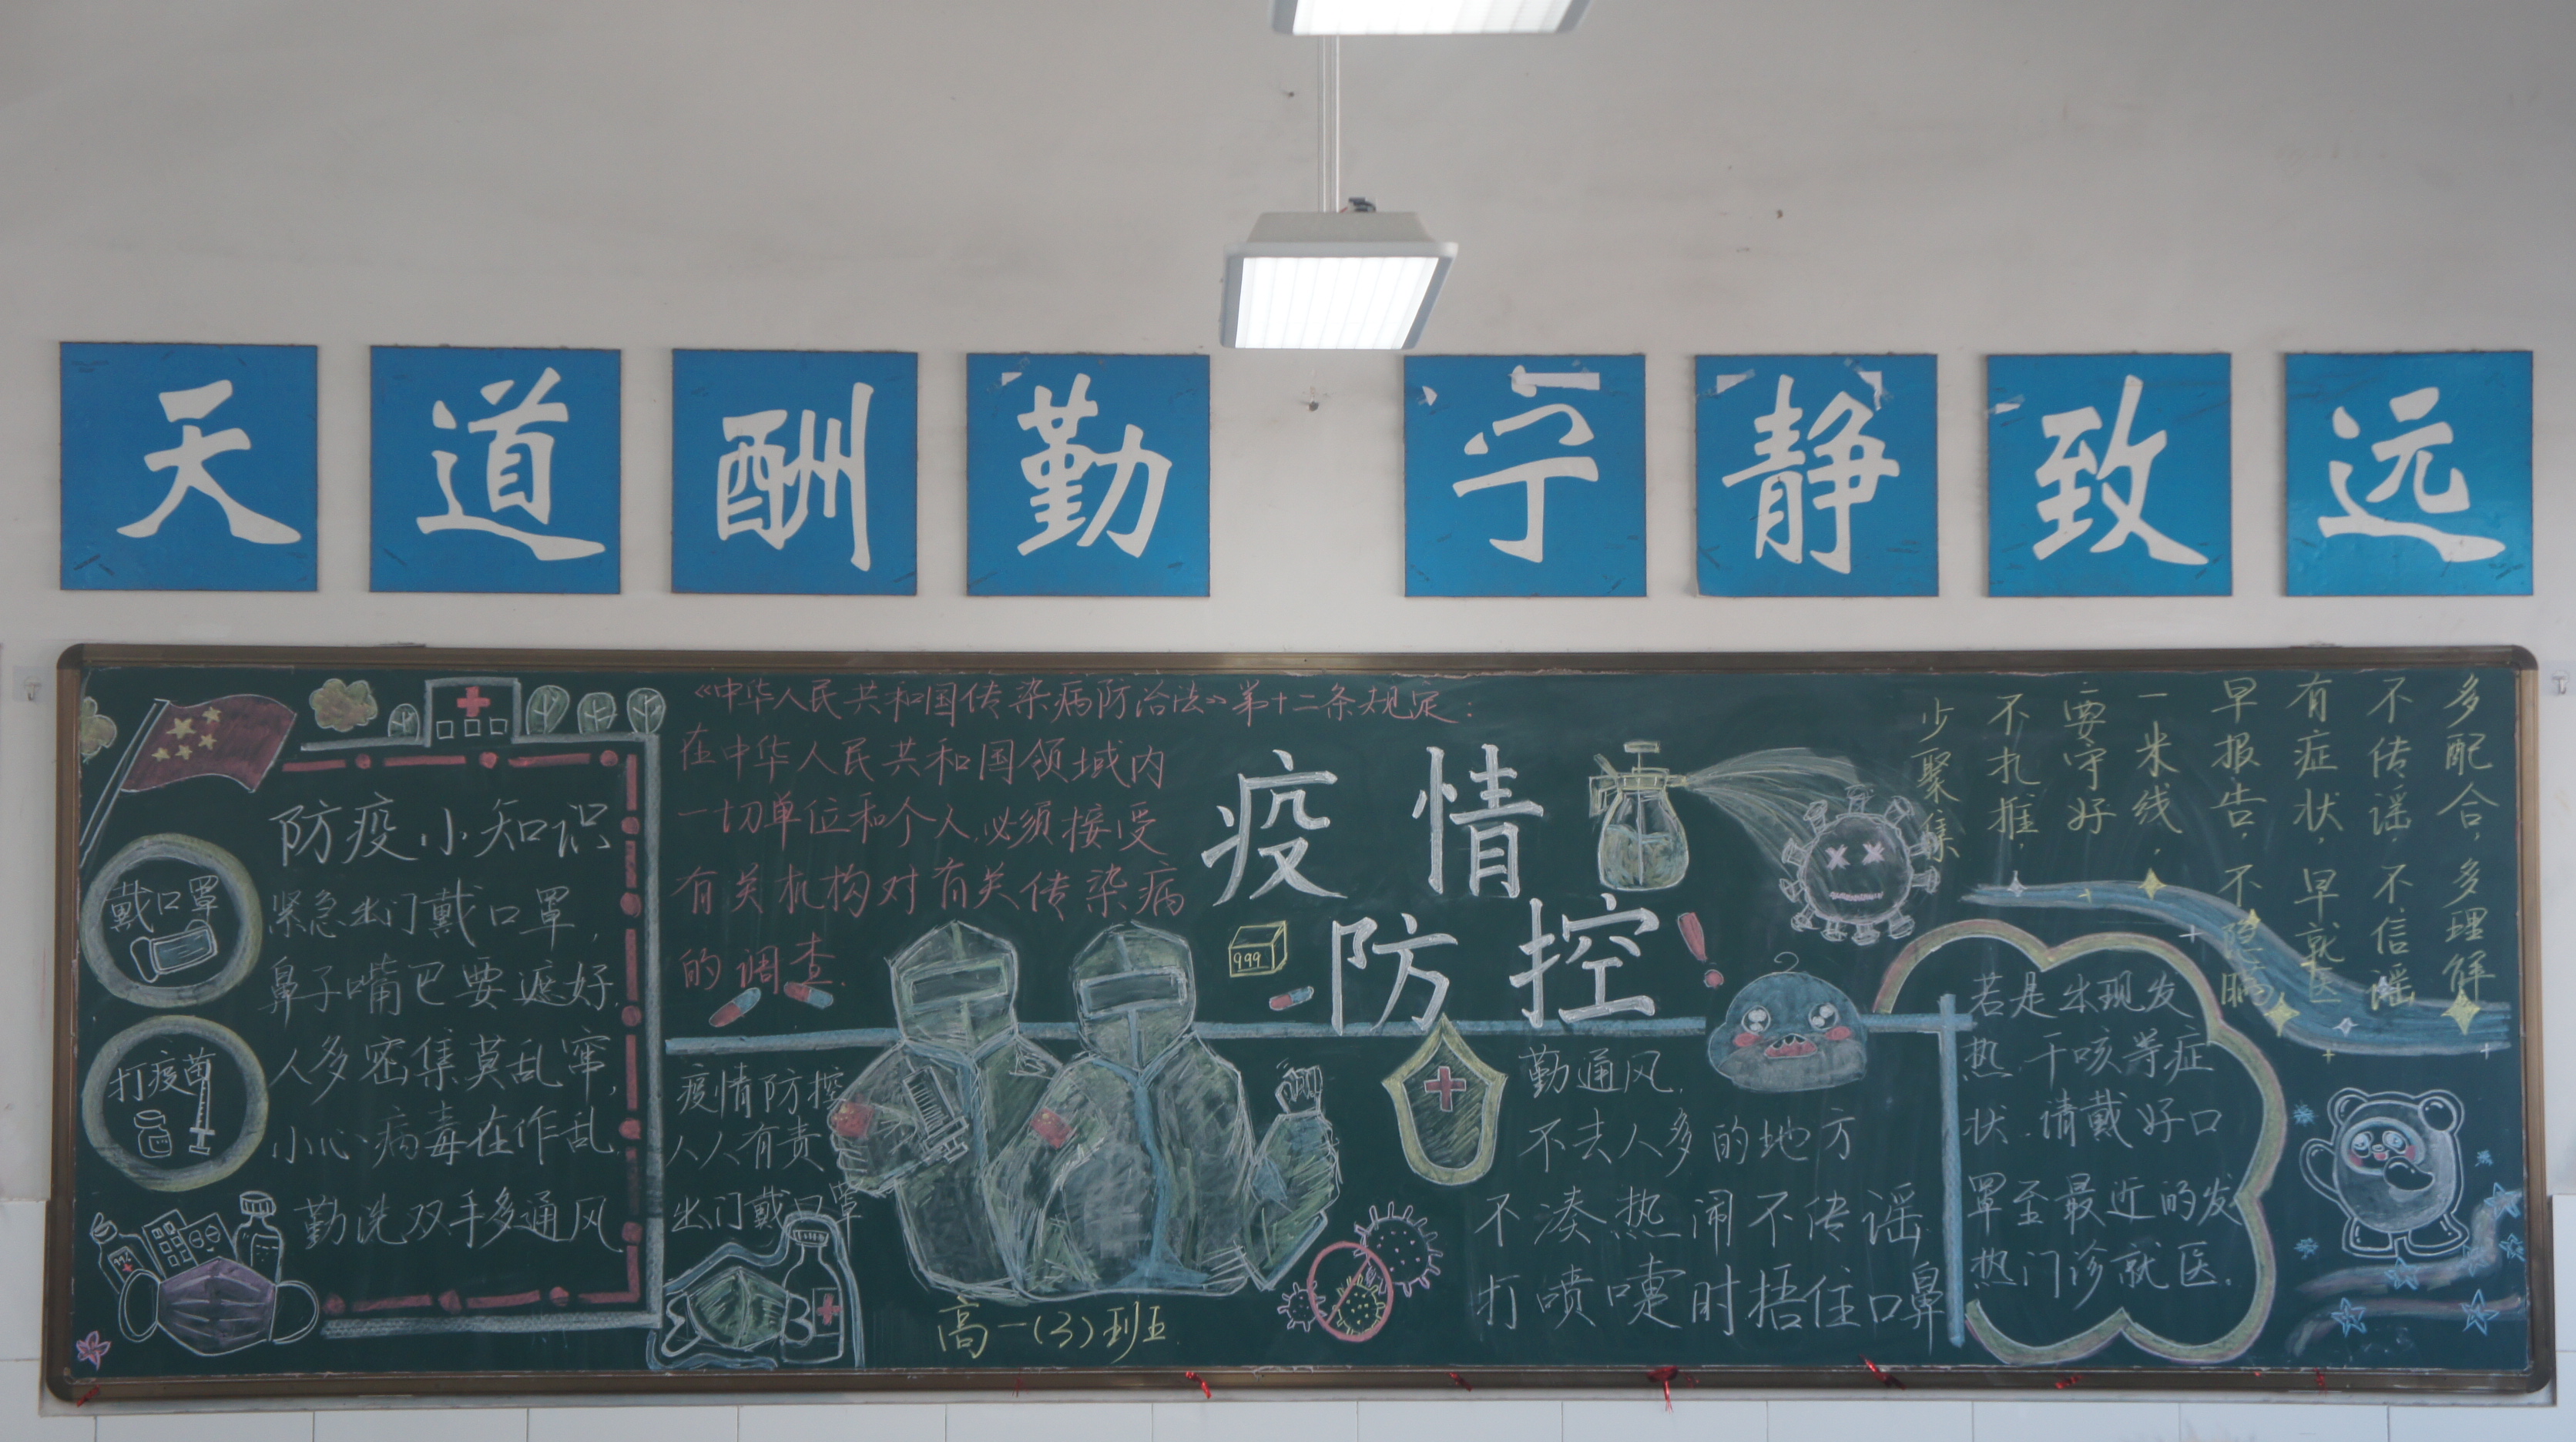 天道酬勤 宁静致远
《中华人民共和国传染病防治法》第十二条规定：
在中华人民共和国领域内
一切单位和个人,必须接受
有关机构对有关传染病
的调查.
疫情
防控!
防疫小知识
紧急出门戴口罩,
鼻子嘴巴要遮好.
人多密集莫乱窜,
小心病毒在作乱
勤洗双手多通风
戴口罩
打疫苗
疫情防控
人人有责
出门戴口罩
999
高一(3)班
勤通风.
不去人多的地方
不凑热闹不传谣
打喷嚏时捂住口鼻
多配合,多理解
不传谣,不信谣
有症状,早就医
早报告,不隐瞒
一米线,
要守好
不扎推,
少聚集
若是出现发
热.干咳等症
状.请戴好口
罩至最近的发
热门诊就医.